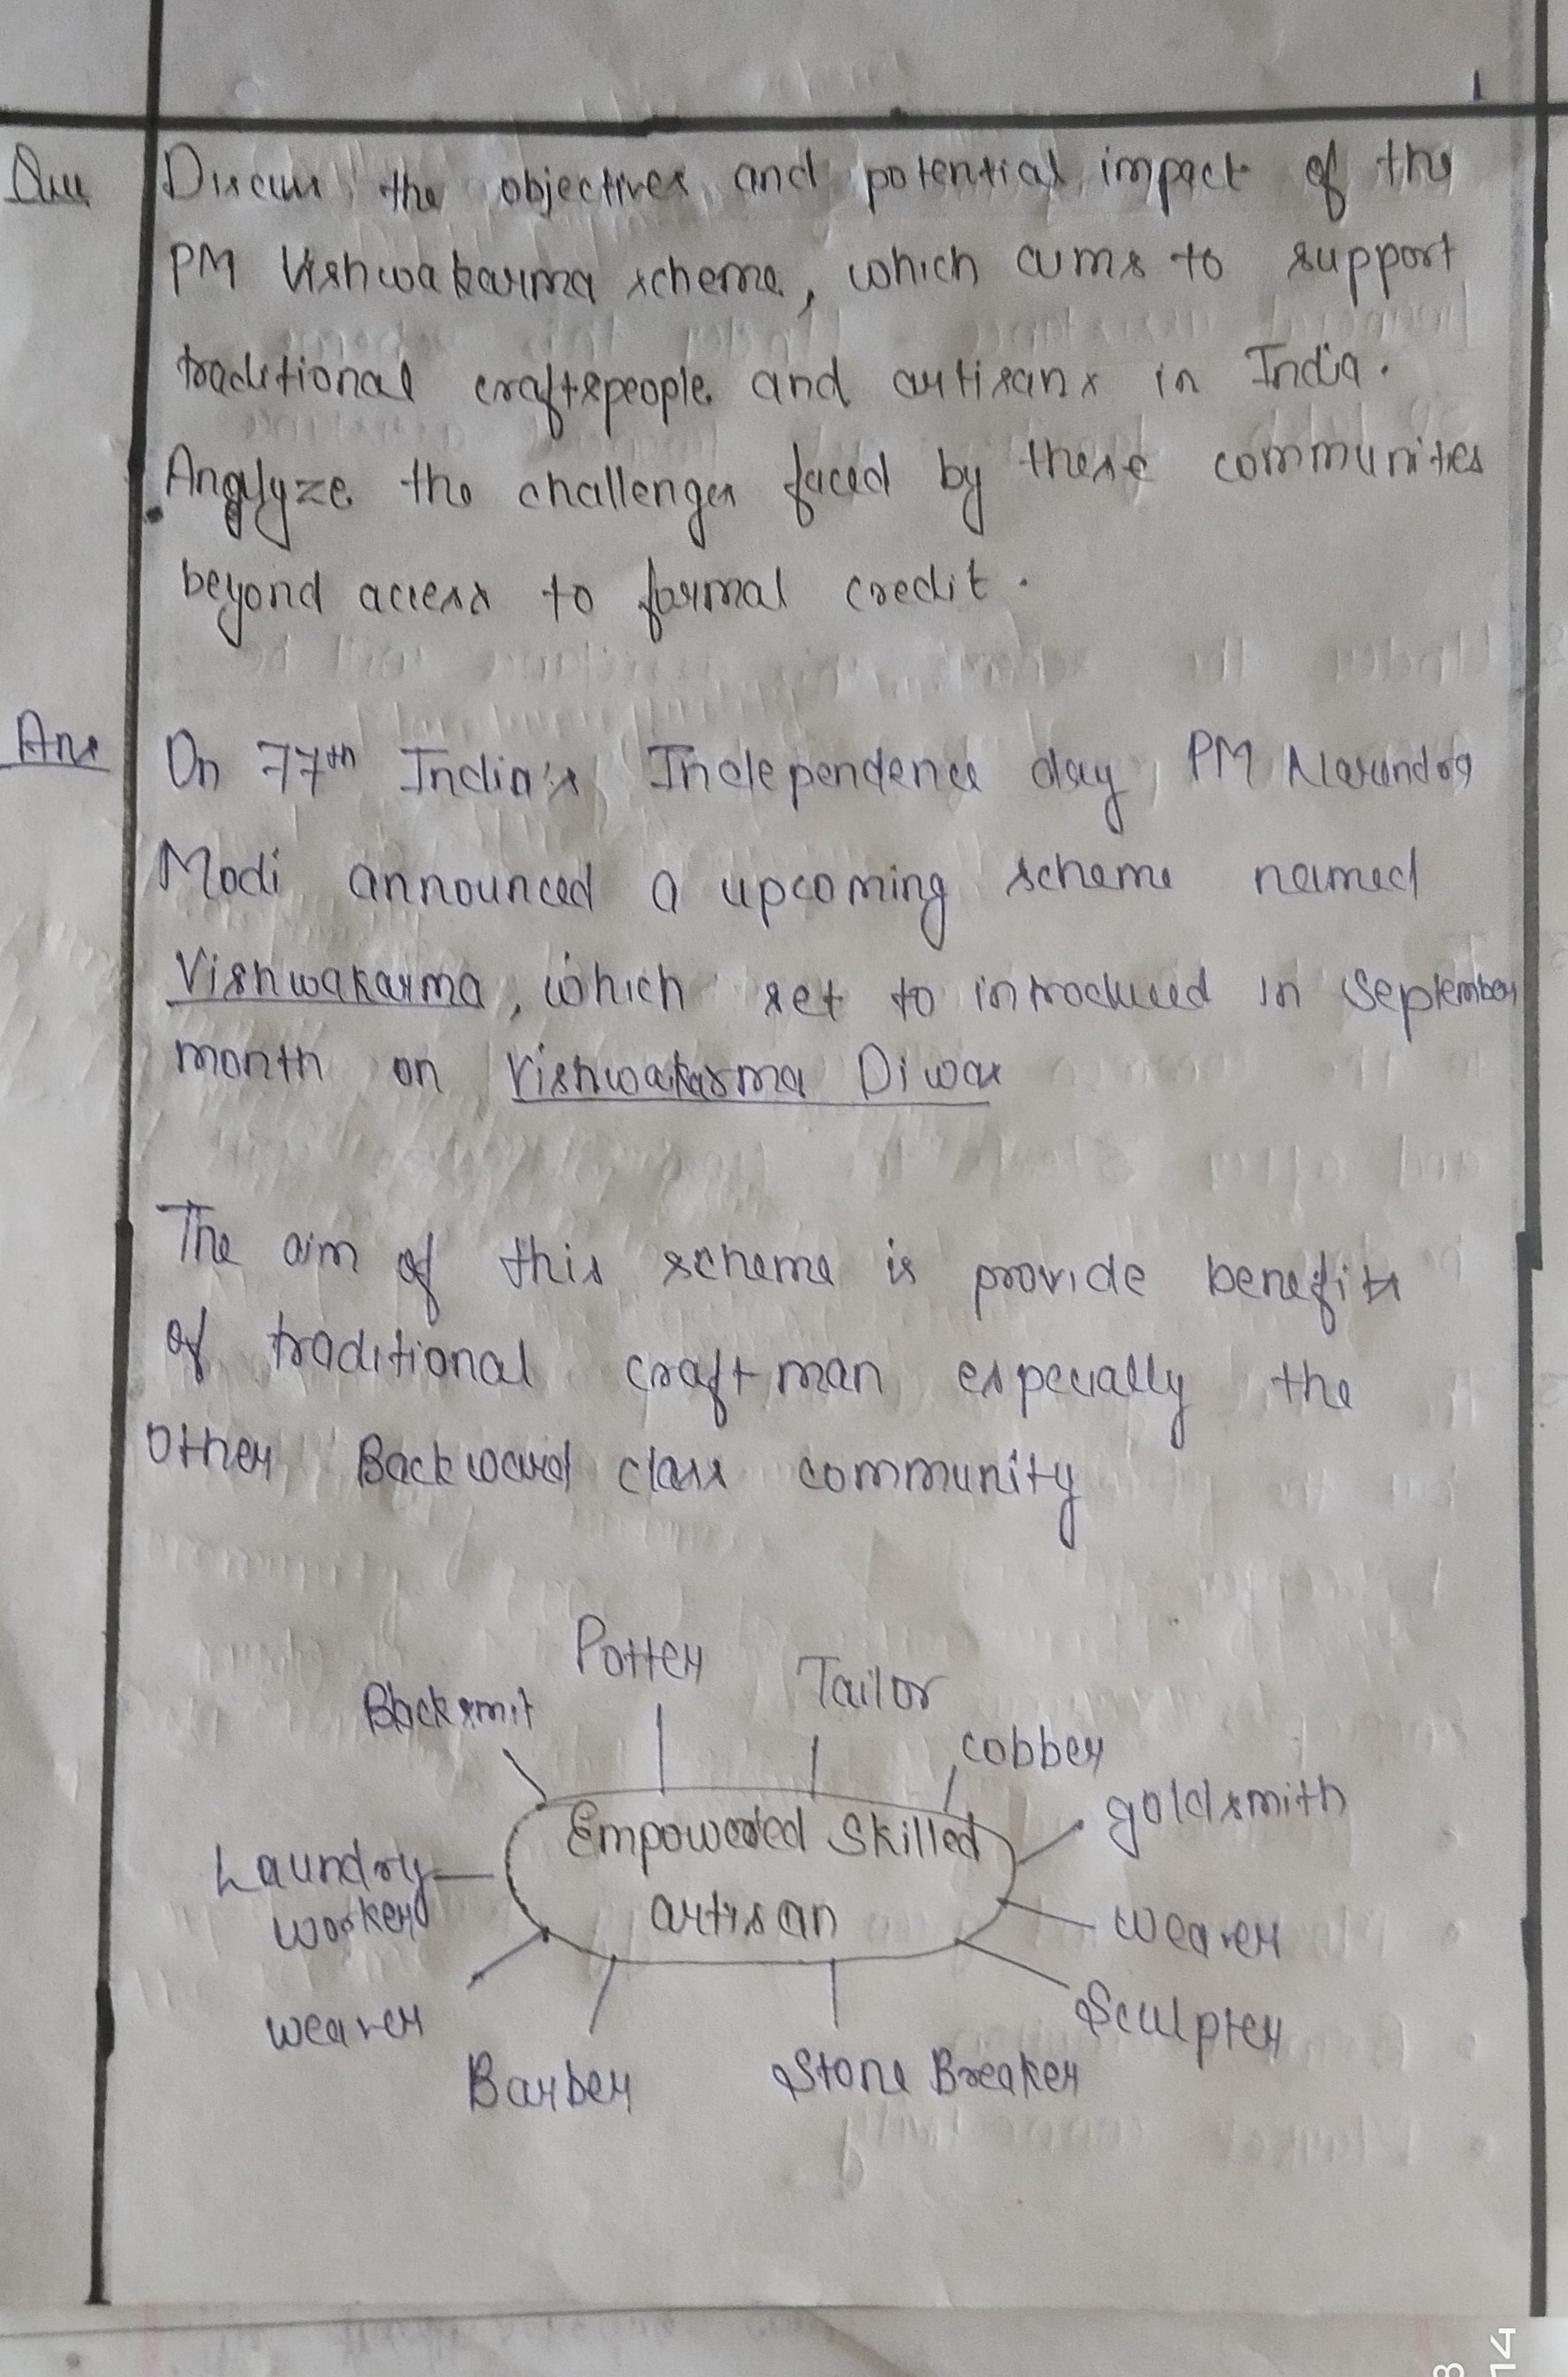 1
Que Discuss the objectives and potential impact of the
PM Vishwakarma scheme, which aims to support
traditional craftspeople and artisans in India.
Analyze the challenges faced by these communities
beyond access to formal credit.
Ans On 77th India's Independence day, PM Narendra
Modi announced a upcoming scheme named
Vishwakarma, which set to introduced in September
month on Vishwakarma Diwas
The aim of this scheme is provide benefits
of traditional craftman especially the
Other Backward class community
Potter
Tailor
Blacksmit
cobber
goldsmith
Empowered Skilled
artisan
Laundry
worker
weaver
weaver
Sculpter
Barber
Stone Breaker
8
14